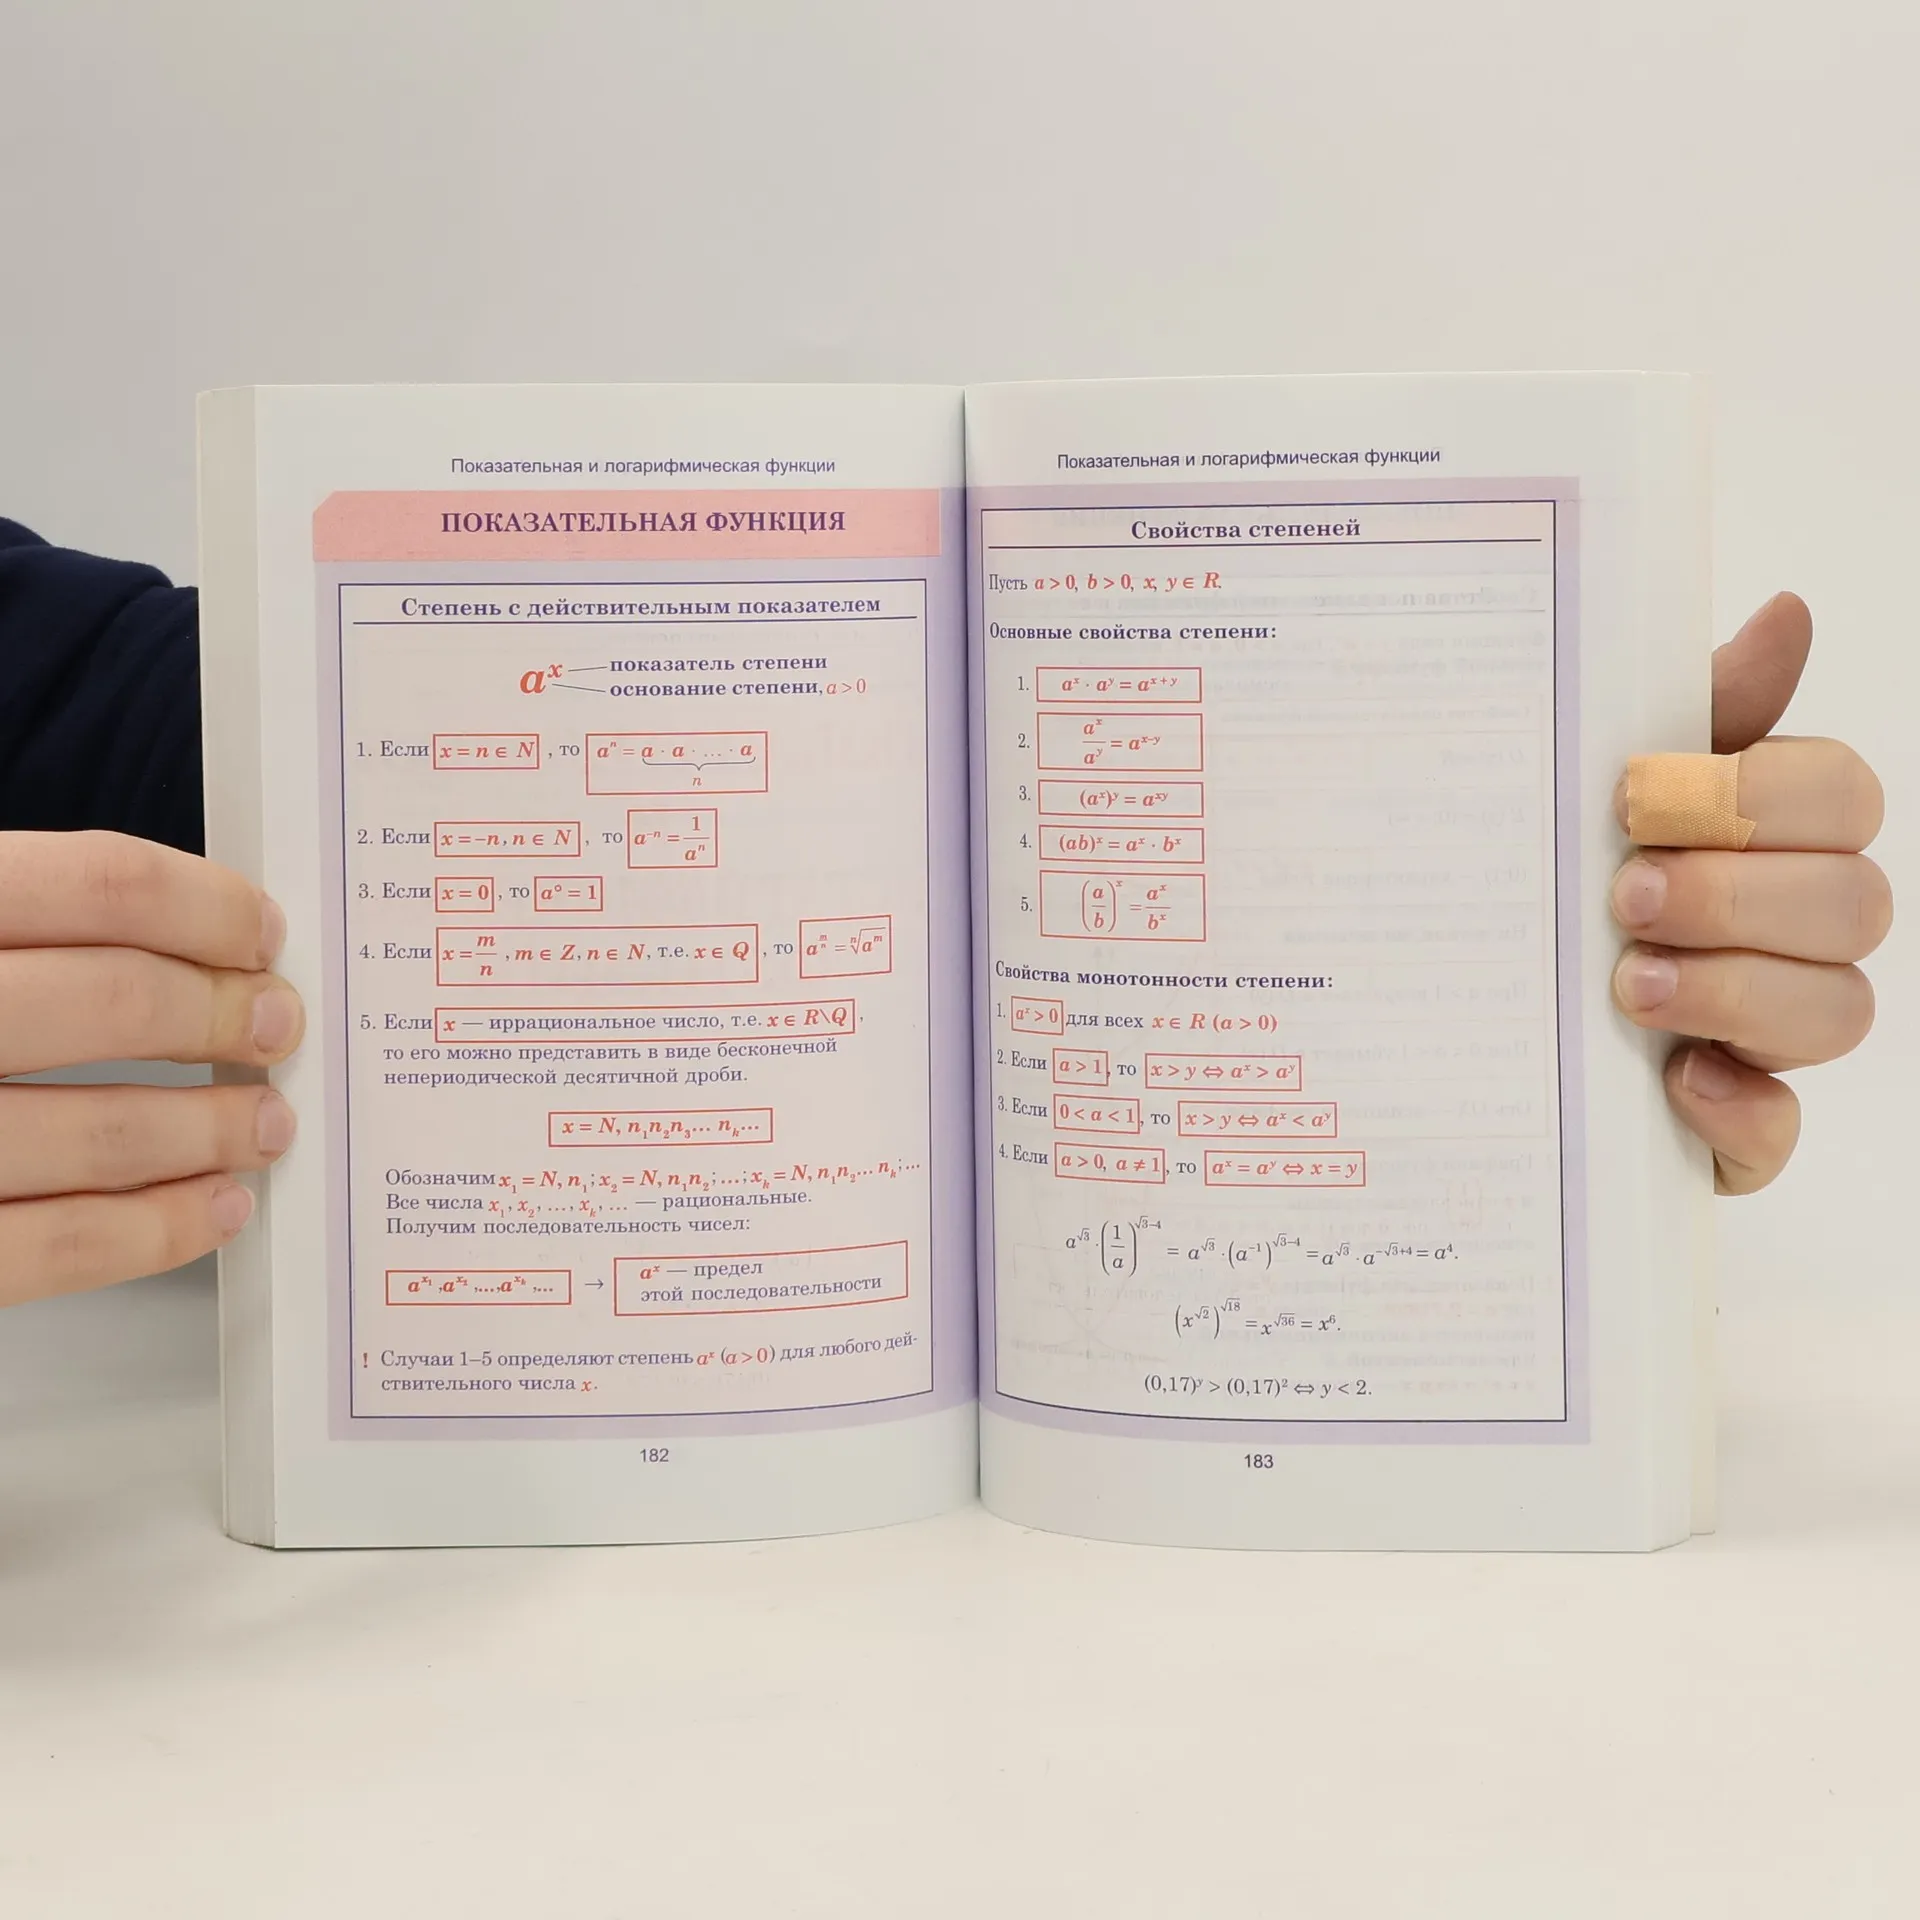 Показательная и логарифмическая функции
ПОКАЗАТЕЛЬНАЯ ФУНКЦИЯ
Степень с действительным показателем
aˣ — показатель степени
основание степени, a > 0
1. Если x = n ∈ N , то aⁿ = a · a · … · a
n
2. Если x = −n, n ∈ N , то a⁻ⁿ = 1/aⁿ
3. Если x = 0 , то a° = 1
4. Если x = m/n , m ∈ Z, n ∈ N, т.е. x ∈ Q , то a^(m/n) = ⁿ√(aᵐ)
5. Если x — иррациональное число, т.е. x ∈ R\Q ,
то его можно представить в виде бесконечной
непериодической десятичной дроби.
x = N, n₁n₂n₃… nₖ…
Обозначим x₁ = N, n₁; x₂ = N, n₁n₂; …; xₖ = N, n₁n₂… nₖ; …
Все числа x₁, x₂, …, xₖ, … — рациональные.
Получим последовательность чисел:
a^(x₁), a^(x₂), …, a^(xₖ), … → aˣ — предел
этой последовательности
! Случаи 1–5 определяют степень aˣ (a > 0) для любого дей-
ствительного числа x.
182
Показательная и логарифмическая функции
Свойства степеней
Пусть a > 0, b > 0, x, y ∈ R.
Основные свойства степени:
1. aˣ · aʸ = aˣ⁺ʸ
2. aˣ/aʸ = aˣ⁻ʸ
3. (aˣ)ʸ = aˣʸ
4. (ab)ˣ = aˣ · bˣ
5. (a/b)ˣ = aˣ/bˣ
Свойства монотонности степени:
1. aˣ > 0 для всех x ∈ R (a > 0)
2. Если a > 1, то x > y ⇔ aˣ > aʸ
3. Если 0 < a < 1, то x > y ⇔ aˣ < aʸ
4. Если a > 0, a ≠ 1, то aˣ = aʸ ⇔ x = y
a^(√3) · (1/a)^(√3−4) = a^(√3) · (a⁻¹)^(√3−4) = a^(√3) · a^(−√3+4) = a⁴.
(x^(√2))^(√18) = x^(√36) = x⁶.
(0,17)ʸ > (0,17)² ⇔ y < 2.
183